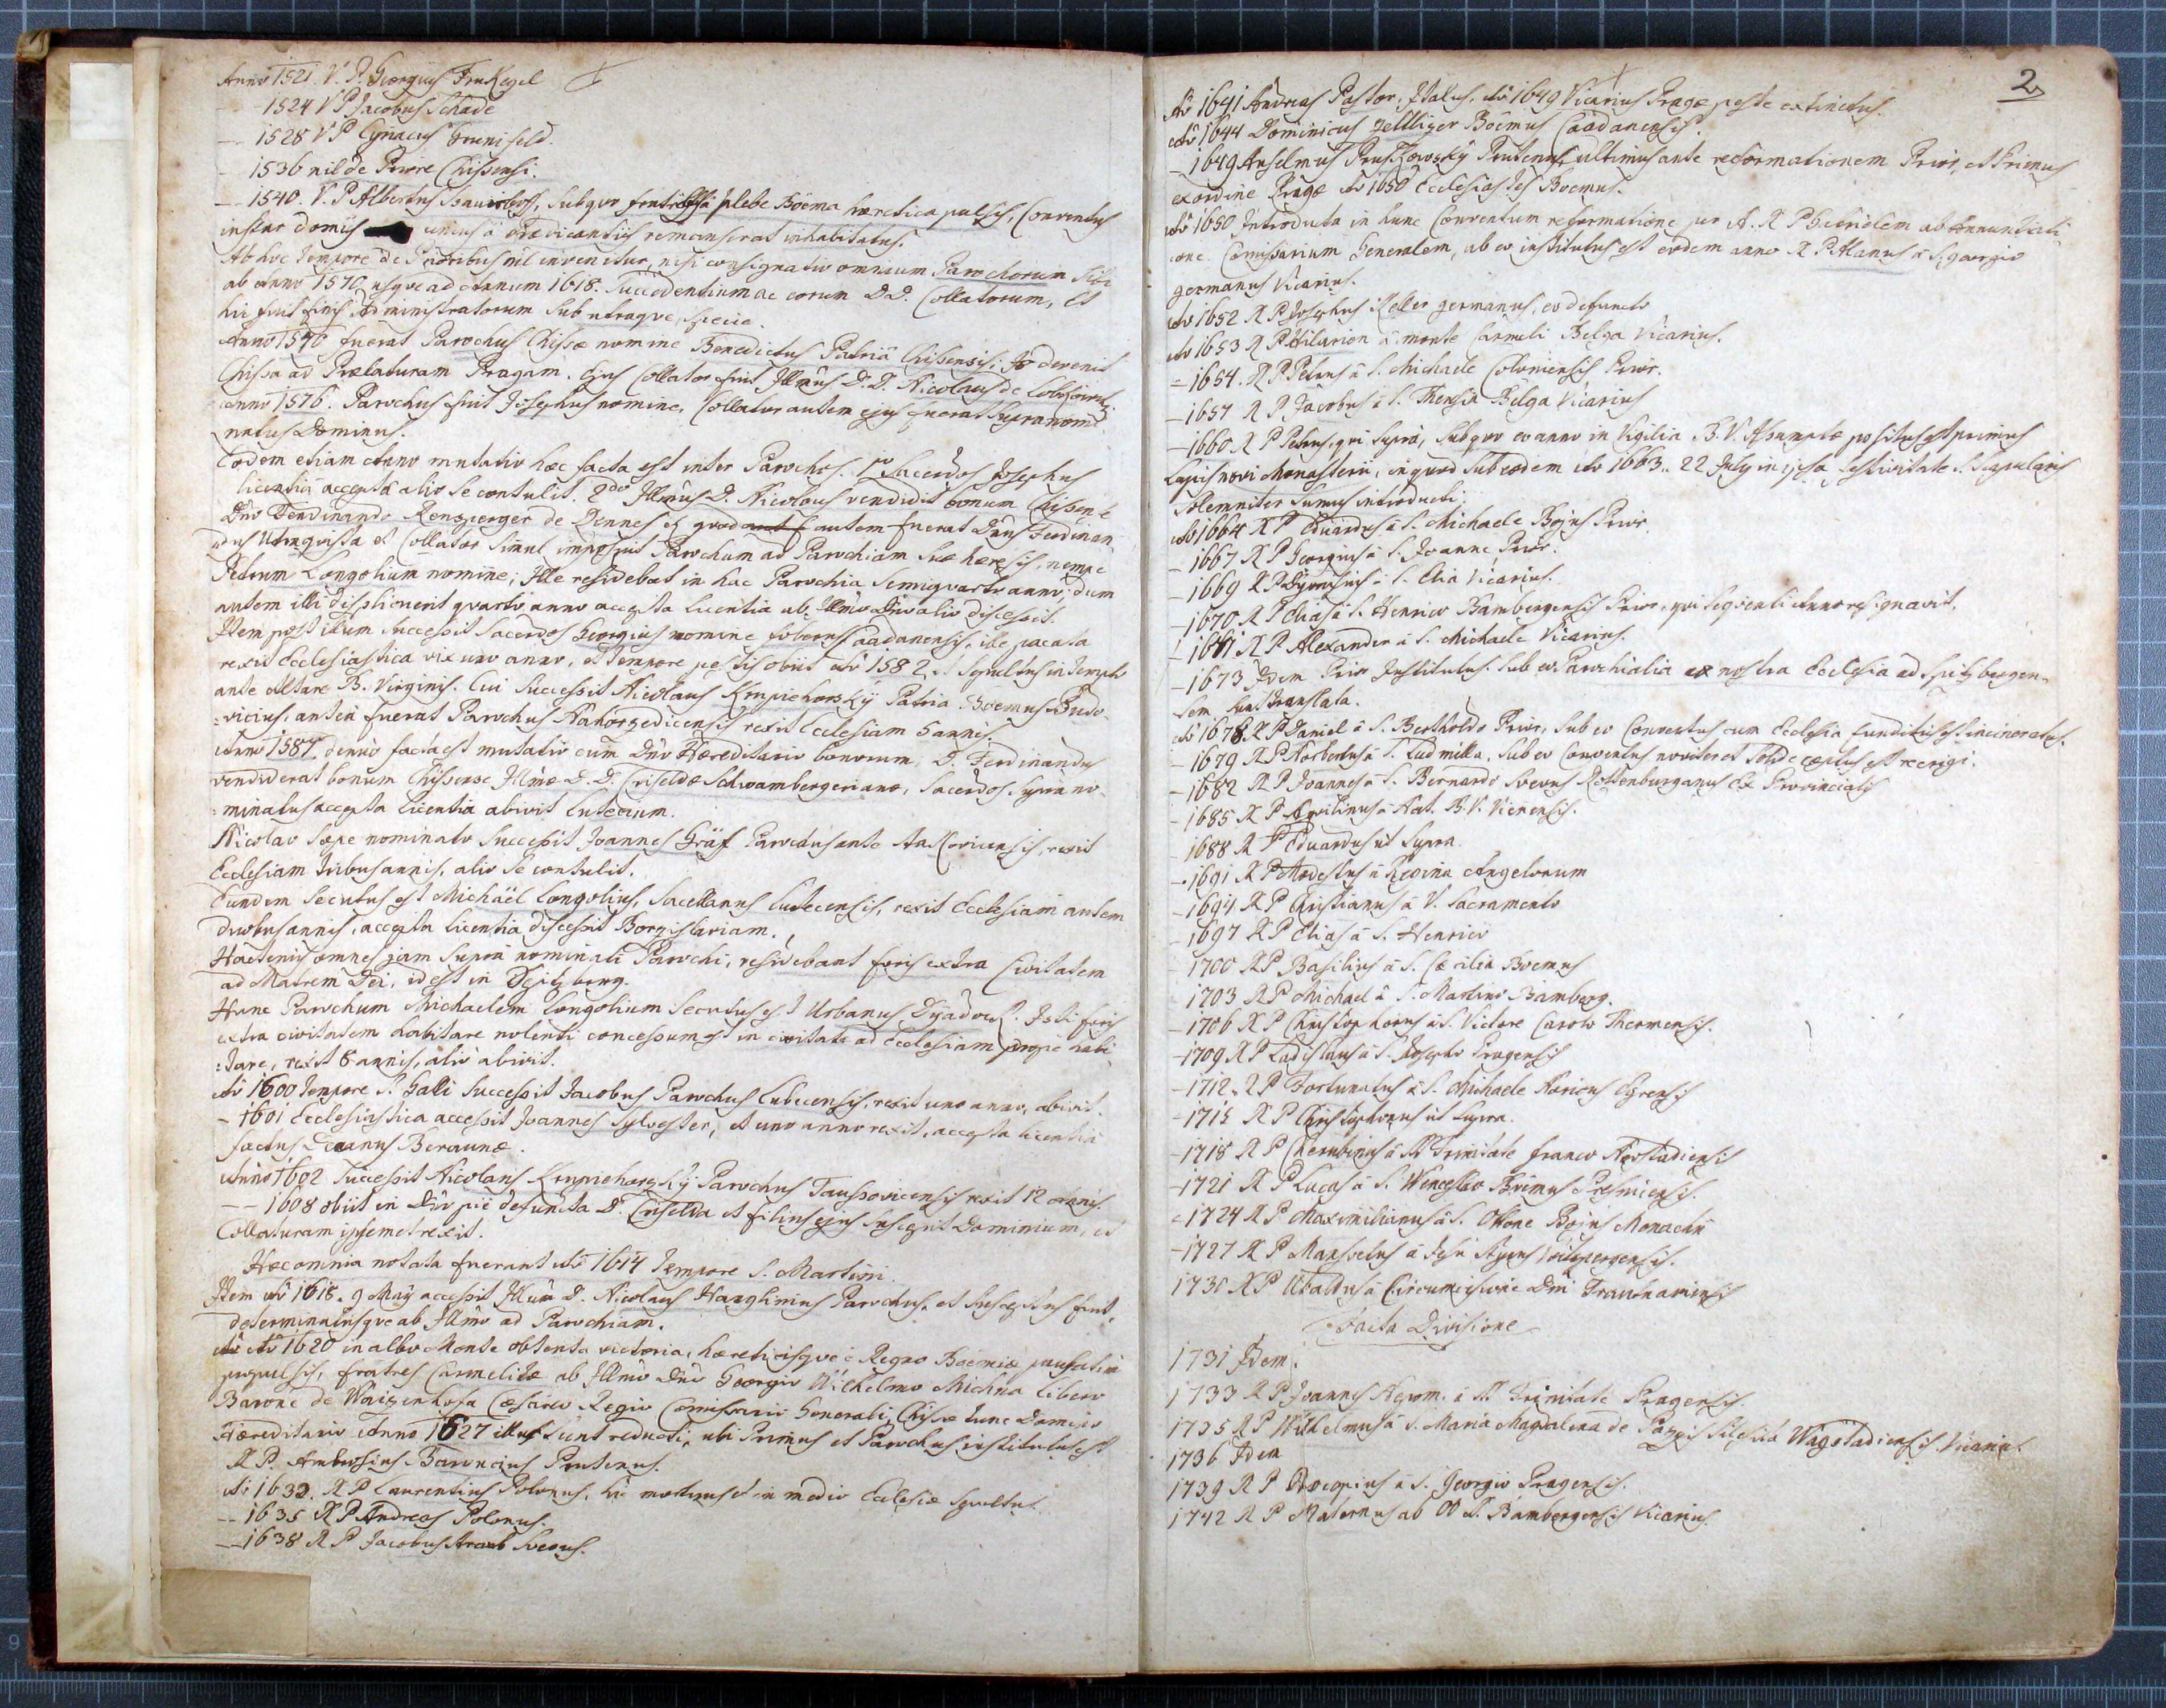 Anno 1521. V. P. Georgius
— 1524 V P Jacobus Schade
— 1528 V P Cyriacus
— 1536 nil de Priore Chissensi.
— 1540. V. P Albertus sub quo fratribus à plebe Boëma hæretica pulsis, Conventus
instar domûs unius à Prædicantiis remanserat inhabitatus.
Ab hoc tempore de Prioribus nil invenitur, nisi consignatio omnium Parochorum sibi
ab Anno 1570 usque ad Annum 1618. succedentium ac eorum DD. Collatorum, et
hic fuit finis Administratorum sub utraque specie.
Anno 1570 fuerat Parochus Chissæ nomine Benedictus Patriâ Chissensis; Is devenit
Chissa ad Prælaturam Pragam. Ejus Collator fuit Illmus D. D. Nicolaus de
Anno 1576. Parochus fuit Josephus nomine, Collator autem ejus fuerat supranomi-
natus Dominus.
Eodem etiam Anno mutatio hæc facta est inter Parochos. 1mo Sacerdos Josephus
licentiâ acceptâ alio se contulit. 2do Illmus D. Nicolaus vendidit bonum Chissense
Dno Ferdinando Rensperger de quod autem fuerat Dnus Ferdinan-
dus Utraquista et Collator simul imposuit Parochum ad Parochiam suæ hæresis, nempe
Petrum Longolium nomine; Ille residebat in hac Parochia semiquarto anno; dum
autem illi displicuerit quarto anno accepta licentia ab Illmo Dno alio discessit.
Item post illum successit Sacerdos Georgius nomine ille pacata
rexit Ecclesiastica vix uno anno, et tempore pestis obiit Ao 1582. et sepultus in templo
ante Altare B. Virginis. Cui successit Nicolaus Krupiehorsky Patria Boemus Budo-
vicius, anteà fuerat Parochus rexit Ecclesiam 5 annis.
Anno 1587 denuò facta est mutatio cum Dno Hæreditario bonorum, D. Ferdinandus
vendiderat bonum Chissense Illmæ D. D. Criseldæ Schwambergerianæ, Sacerdos supra no-
minatus accepta licentia abivit Lutecium.
Nicolao sæpe nominato successit Joannes Gräf Parochus ante rexit
Ecclesiam tribus annis, alio se contulit.
Eundem secutus est Michaël Longolius, Sacellanus Lutecensis, rexit Ecclesiam autem
duobus annis, accepta licentia discessit Borzislaviam.
Hactenus omnes jam supra nominati Parochi, residebant foris extra Civitatem
ad Matrem Dei, id est in Spitzberg.
Hunc Parochum Michaelem Longolium secutus est Urbanus Isti foris
extra civitatem habitare nolenti concessum est in civitate ad Ecclesiam propè habi-
tare, rexit 8 annis, alio abivit.
Ao 1600 tempore S. Galli successit Jacobus Parochus Lubecensis, rexit uno anno, abivit.
— 1601 Ecclesiastica accessit Joannes Sylvester, et uno anno rexit, accepta licentia
factus Decanus Beraunæ.
Anno 1602 successit Nicolaus Krupiehorsky Parochus rexit 12 annis.
— 1608 obiit in Dno piè defuncta D. Criselda et filius ejus suscepit Dominium, et
Collaturam ipsemet rexit.
Hæc omnia notata fuerunt Ao 1614 tempore S. Martini
Item Ao 1618. 9 Maij accessit Illum D. Nicolaus Parochus, et susceptus fuit,
determinatusque ab Illmo ad Parochiam.
Ao 1620 in albo Monte obtenta victoria, hæreticisque è Regno Boemiæ
propulsis, fratres Carmelitæ ab Illmo Dno Georgio Wilhelmo Michna libero
Barone de Waizenhofa Cæsareo Regio Comissario Generali, Chissæ tunc Domino
Hæreditario Anno 1627 sunt reducti, ubi Primus et Parochus institutus est
R P. Ambrosius Prutenus.
Ao 1632. R P Laurentius Polonus, hic mortuus et in medio Ecclesiæ sepultus.
— 1635 R P Andreas Polonus.
— 1638 R P Jacobus Suevus.
2
Ao 1641 Andreas Pastor, Italus, Ao 1649 Vicarius Pragæ peste extinctus.
Ao 1644 Dominicus Zettlizer Boëmus Caadanensis.
— 1649 Anselmus Prutenus, ultimus ante reformationem Prior, et Primus
ex ordine Pragæ Ao 1650 Ecclesiastes Boemus.
Ao 1650 Introducta in hunc Conventum reformatione per A. R P Gabrielem ab Annuntiati-
one Comissarium Generalem, ab eo institutus est eodem anno R P Alanus à S. Georgio
germanus Vicarius.
Ao 1652 R P Josephus Keller germanus, eo defuncto
Ao 1653 R P Hilarion à monte Carmeli Belga Vicarius.
— 1654. R P Petrus à S. Michaele Coloniensis Prior.
— 1657 R P Jacobus à S. Theresia Belga Vicarius
— 1660 R P Petrus, qui supra, sub quo eo anno in Vigilia B. V. Assumptæ positus est primus
Lapis novi Monasterii, in quod sub eodem Ao 1663. 22 July in ipsa festivitate S. Scapularis
solemniter sumus introducti.
Ao 1664 R P Eduardus à S. Michaele Bojus Prior
— 1667 R P Georgius à S. Joanne Prior.
— 1669 R P Dyonisius à S. Elia Vicarius.
— 1670 R P Elias à S. Henrico Bambergensis Prior, qui sequenti Anno resignavit.
— 1671 R P Alexander à S. Michaele Vicarius.
— 1673 Idem Prior Institutus. Sub eo Parochialia ex nostra Ecclesia ad Spitzbergen-
sem sunt translata.
Ao 1678. R P Daniel à S. Bertholdo Prior, sub eo Conventus cum Ecclesia funditùs est incineratus.
— 1679 R P Norbertus à S. Ludmilla, sub eo Conventus noviter et solidè cæptus est reerigi.
— 1682 R P Joannes à S. Bernardo Suevus Rottenburganus Ex Provincialis
— 1685 R P Aquilinus à Nat. B. V. Vienensis.
— 1688 R P Eduardus ut supra.
— 1691 R P Modestus à Regina Angelorum
— 1694 R P Christianus à V. Sacramento
— 1697 R P Elias à S. Henrico
— 1700 R P Basilius à S. Cæcilia Boemus
— 1703 R P Michael à S. Martino Bamberg.
— 1706 R P Christophorus à S. Victore Carolo Thermensis.
— 1709 R P Ladislaus à S. Josepho Pragensis
— 1712. R P Fortunatus à S. Michaele Noricus Egrensis
— 1715 R P Christophorus ut supra.
— 1718 R P Cherubinus à SS. Trinitate franco Neostadiensis
— 1721 R P Lucas à S. Wenceslao Boëmus
— 1724 R P Maximilianus à S. Ottone Bojus Monachii
— 1727 R P Mansvetus à Jesu
1730 R P Ubaldus à Circumcisione Dni Trautnaviensis
Facta Divisione
1731 Idem.
1733 R P Joannes Nepom. à SS. Trinitate Pragensis.
1735 R P Wilhelmus à S. Maria Magdalena de Pazzis Silesita Wagstadiensis. Vicarius.
1736 Idem
1739 R P Procopius à S. Georgio Pragensis.
1742 R P Maternus ab OO SS. Bambergensis Vicarius.